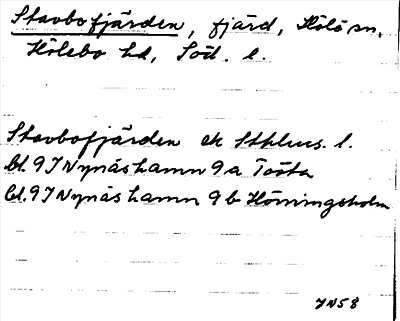 Stavbofjärden, fjärd, Hölö sn,
Hölebo hd, Söd. l.
Stavbofjärden ek Sthlms. l.
bl. 9I Nynäshamn 9a Tösta
bl. 9I Nynäshamn 9b Hörningsholm
JN58